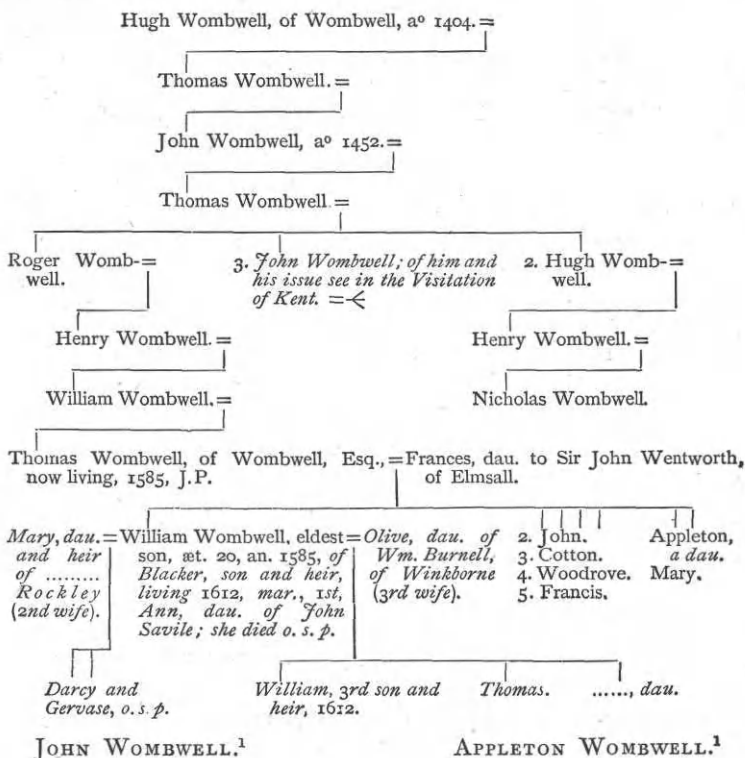 Hugh Wombwell, of Wombwell, aº 1404.=
Thomas Wombwell.=
John Wombwell, aº 1452.=
Thomas Wombwell.=
Roger Womb-=
well.
3. John Wombwell; of him and
his issue see in the Visitation
of Kent. =
2. Hugh Womb-=
well.
Henry Wombwell.=
Henry Wombwell.=
William Wombwell.=
Nicholas Wombwell.
Thomas Wombwell, of Wombwell, Esq.,=Frances, dau. to Sir John Wentworth,
now living, 1585, J.P.
of Elmsall.
Mary, dau.=
and heir
of .........
Rockley
(2nd wife).
William Wombwell, eldest=
son, æt. 20, an. 1585, of
Blacker, son and heir,
living 1612, mar., 1st,
Ann, dau. of John
Savile; she died o. s. p.
Olive, dau. of
Wm. Burnell,
of Winkborne
(3rd wife).
2. John.
3. Cotton.
4. Woodrove.
5. Francis.
Appleton,
a dau.
Mary.
Darcy and
Gervase, o. s. p.
William, 3rd son and
heir, 1612.
Thomas.
......, dau.
JOHN WOMBWELL.¹
APPLETON WOMBWELL.¹